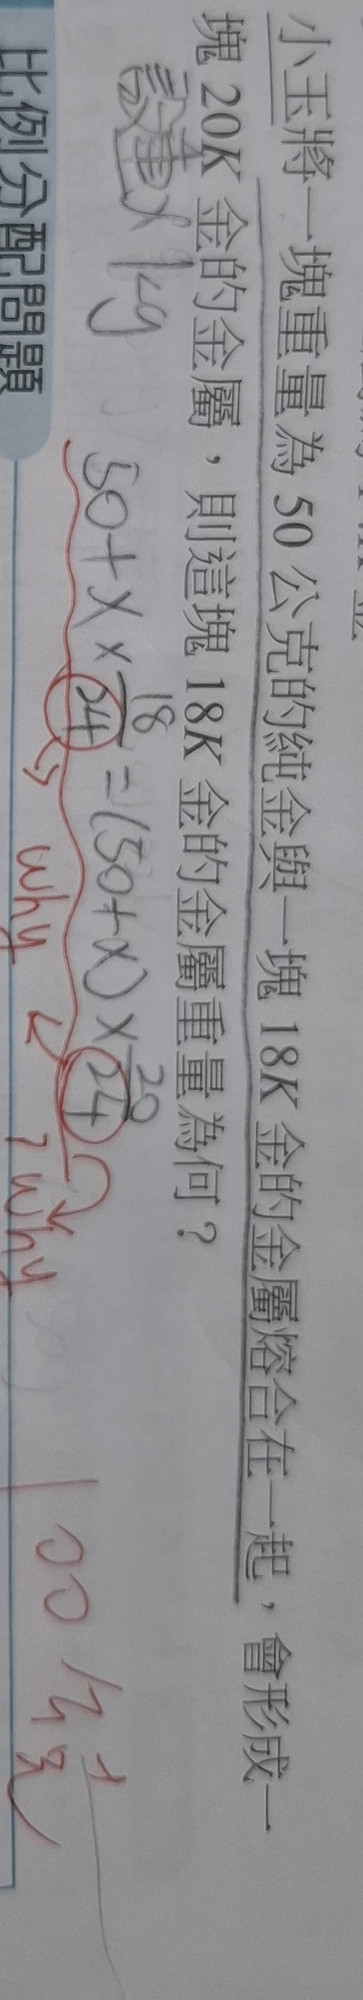 小玉將一塊重量為 50 公克的純金與一塊 18K 金的金屬熔合在一起，會形成一
塊 20K 金的金屬，則這塊 18K 金的金屬重量為何？
設重 x kg
50 + x × 18/24 = (50+x) × 20/24
why ? why
100公克
比例分配問題